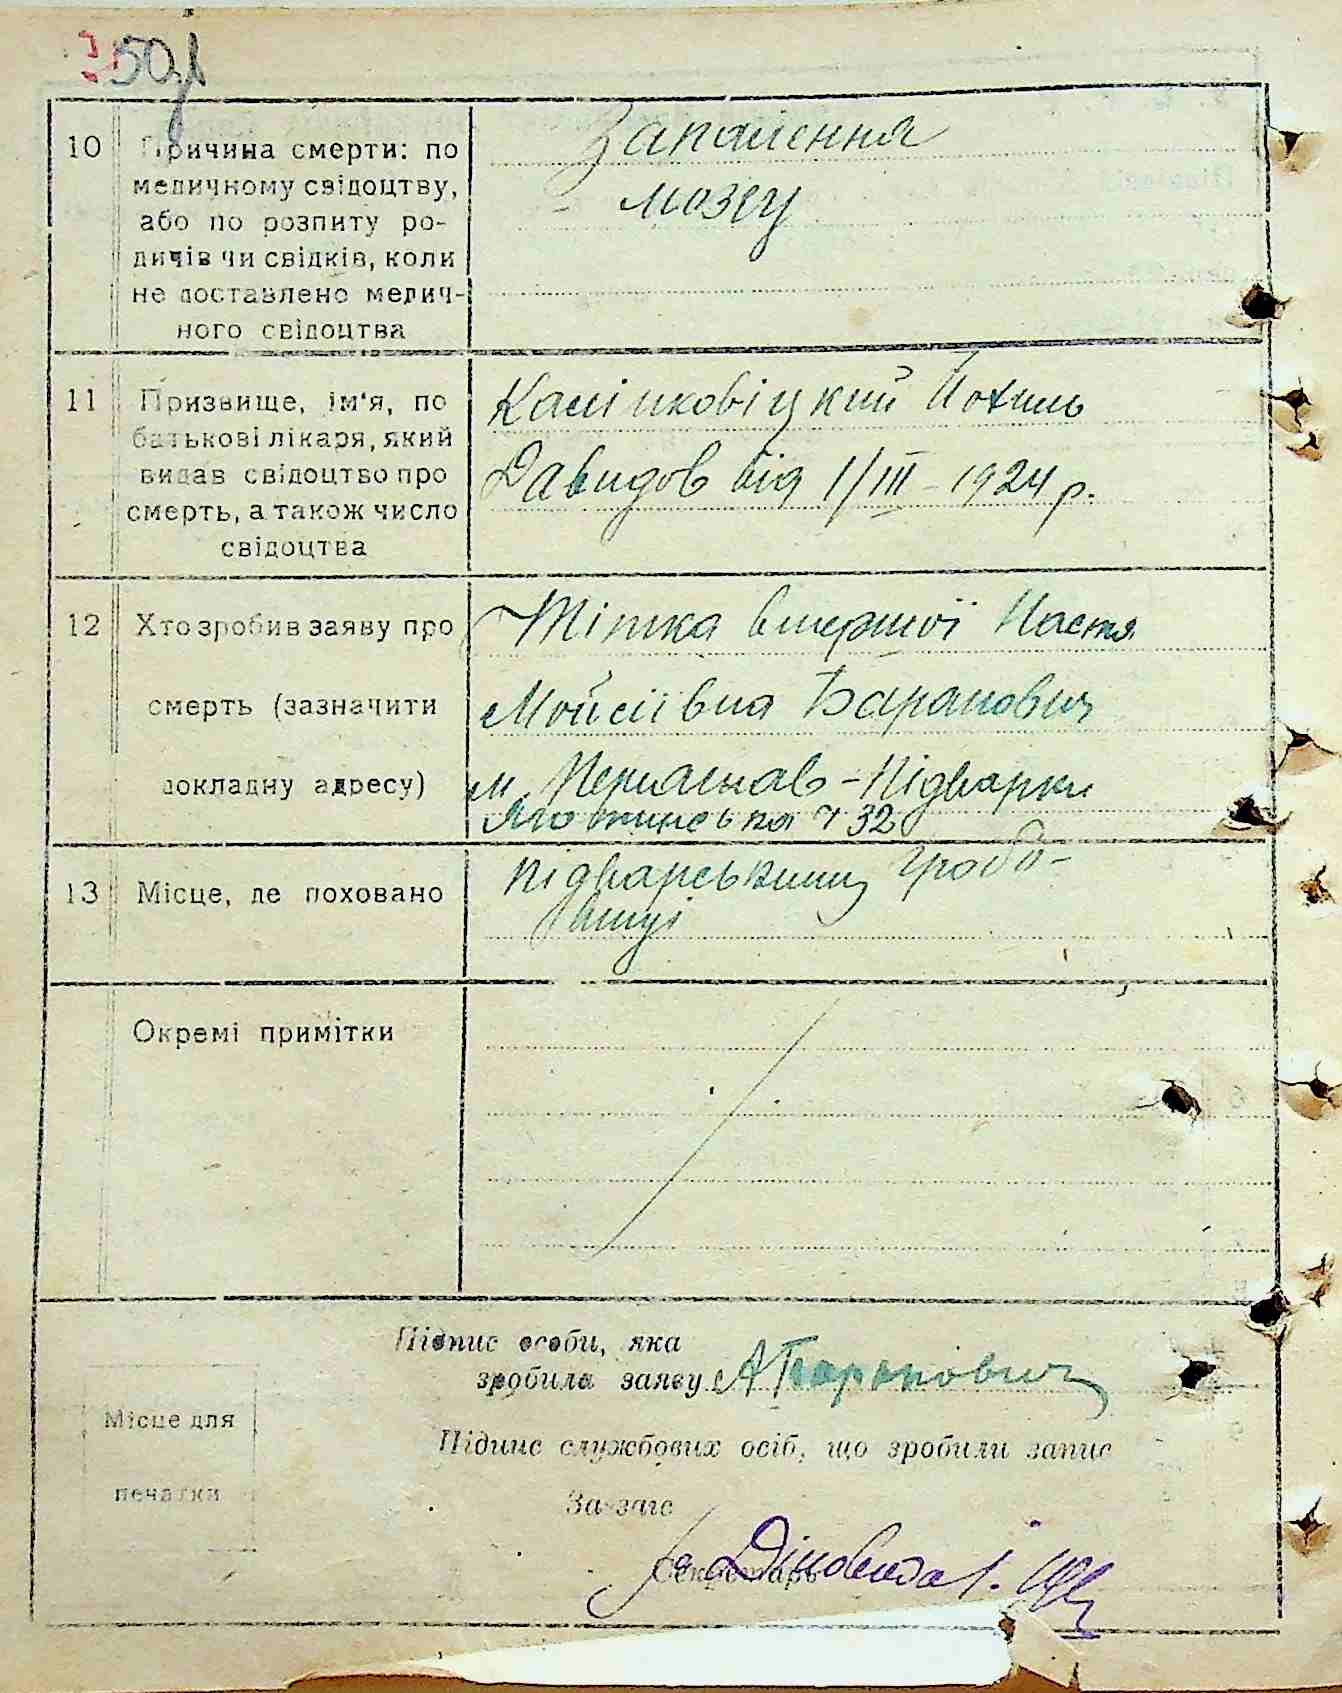 50
10 Причина смерти: по
медичному свідоцтву,
або по розпиту ро-
дичів чи свідків, коли
не доставлено медич-
ного свідоцтва
Запалення
мозгу
11 Призвище, ім'я, по
батькові лікаря, який
видав свідоцтво про
смерть, а також число
свідоцтва
Калінковіцкий Йохиль
Давидов від 1/III - 1924 р.
12 Хто зробив заяву про
смерть (зазначити
докладну адресу)
Тітка вмершої Настя
Мойсіївна Баранович
м. Переяслав - Підварки
Яготинська ч 32
13 Місце, де поховано
Підварським гробо-
вищі
Окремі примітки
Підпис особи, яка
зробила заяву А Баранович
Підпис службових осіб, що зробили запис
За загс
Секретарь
Місце для
печатки